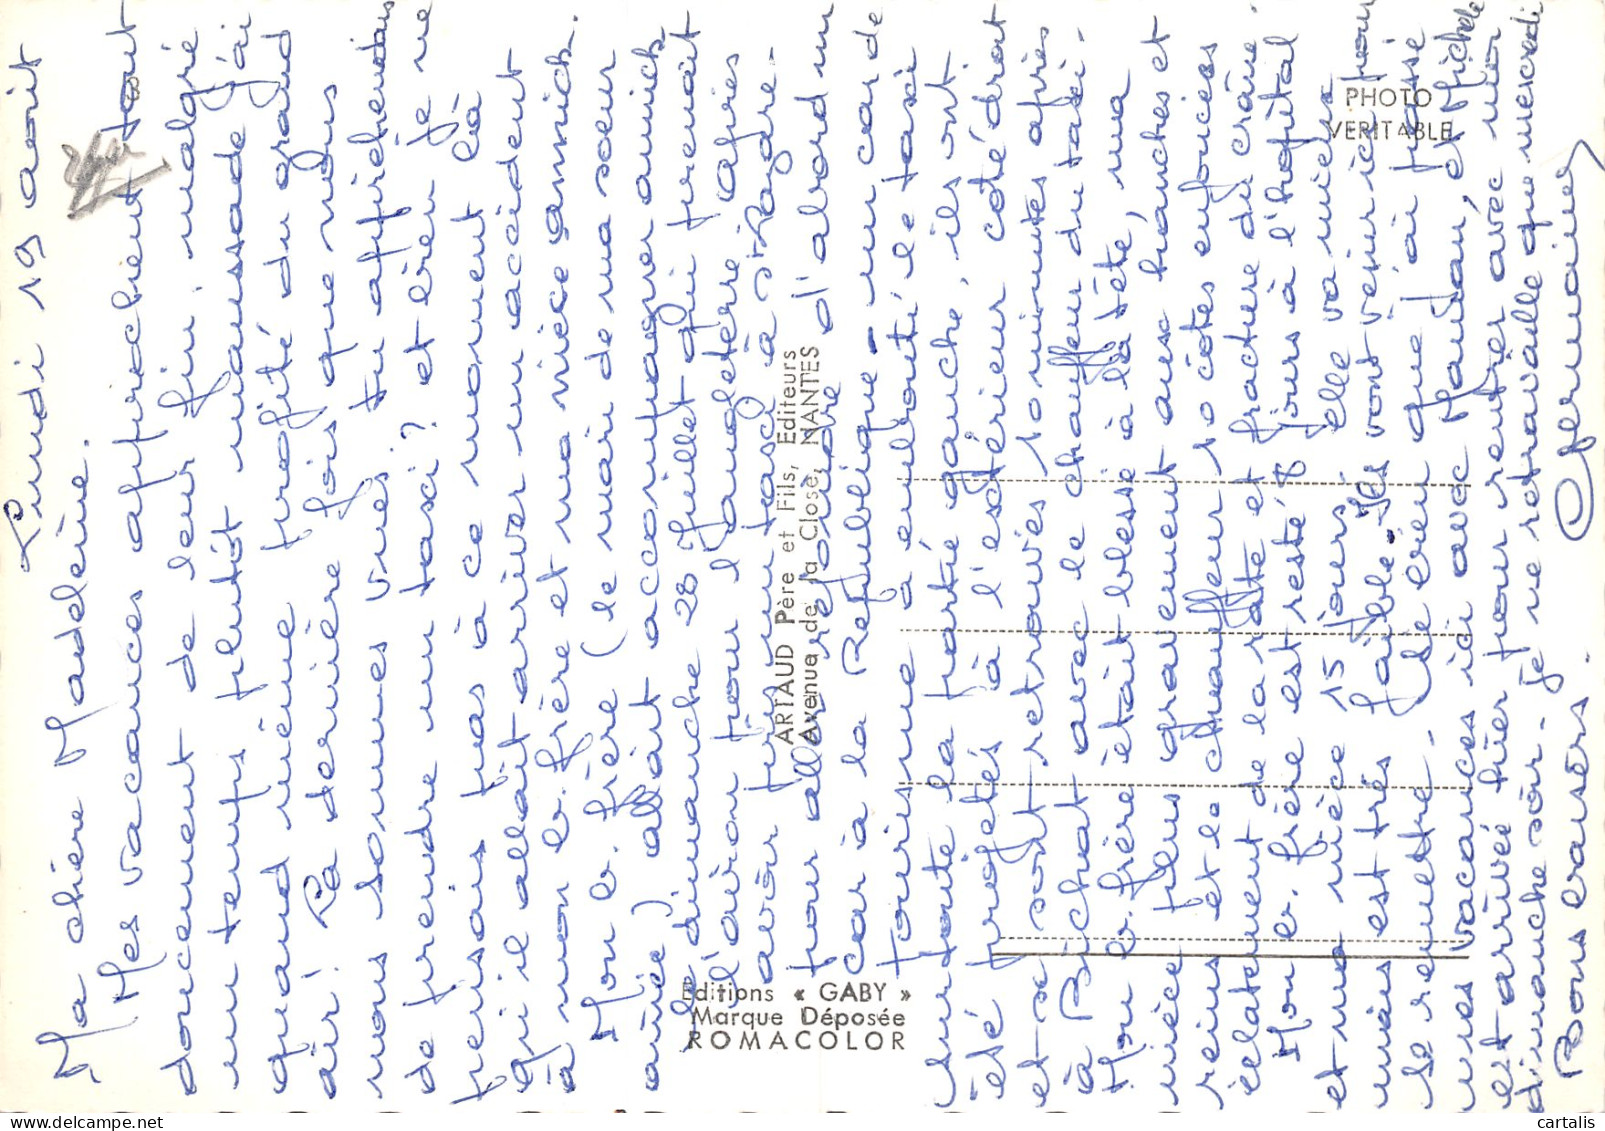 Lundi 19 août
Ma chère Madeleine.
Mes vacances approchent tout
doucement de leur fin, malgré
un temps plutôt maussade j'ai
quand même profité du grand
air! La dernière fois que nous
nous sommes vues tu appréhendais
de prendre un taxi? et bien je ne
pensais pas à ce moment là
qu'il allait arriver un accident
à mon b. frère et ma nièce Annick.
Mon b. frère (le mari de ma sœur
aînée) allait accompagner Annick
le dimanche 28 Juillet qui prenait
l'avion pour l'Angleterre (après
avoir pris un taxi à
pour aller d'abord un
car à la République - un car de
tourisme a embouti le taxi
sur toute la partie gauche, ils ont
été projetés à l'extérieur côté droit
et se sont retrouvés 10 minutes après
à Bichat avec le chauffeur du taxi.
Mon b. frère était blessé à la tête, ma
nièce plus gravement aux hanches et
reins et le chauffeur 10 côtes enfoncées
éclatement de la rate et fracture du crâne.
Mon b. frère est resté 8 jours à l'hôpital
et ma nièce 15 jours. elle va mieux
mais est très faible. Ils vont venir ici pour
se remettre. C'est bien que j'ai passé
mes vacances ici avec Maman, et Michèle
est arrivée hier pour rentrer avec moi
dimanche soir. je ne retravaille que mercredi
Bons baisers.
Germaine
PHOTO
VERITABLE
ARTAUD Père et Fils, Editeurs
Avenue de la Close, NANTES
Editions « GABY »
Marque Déposée
ROMACOLOR
cartalis